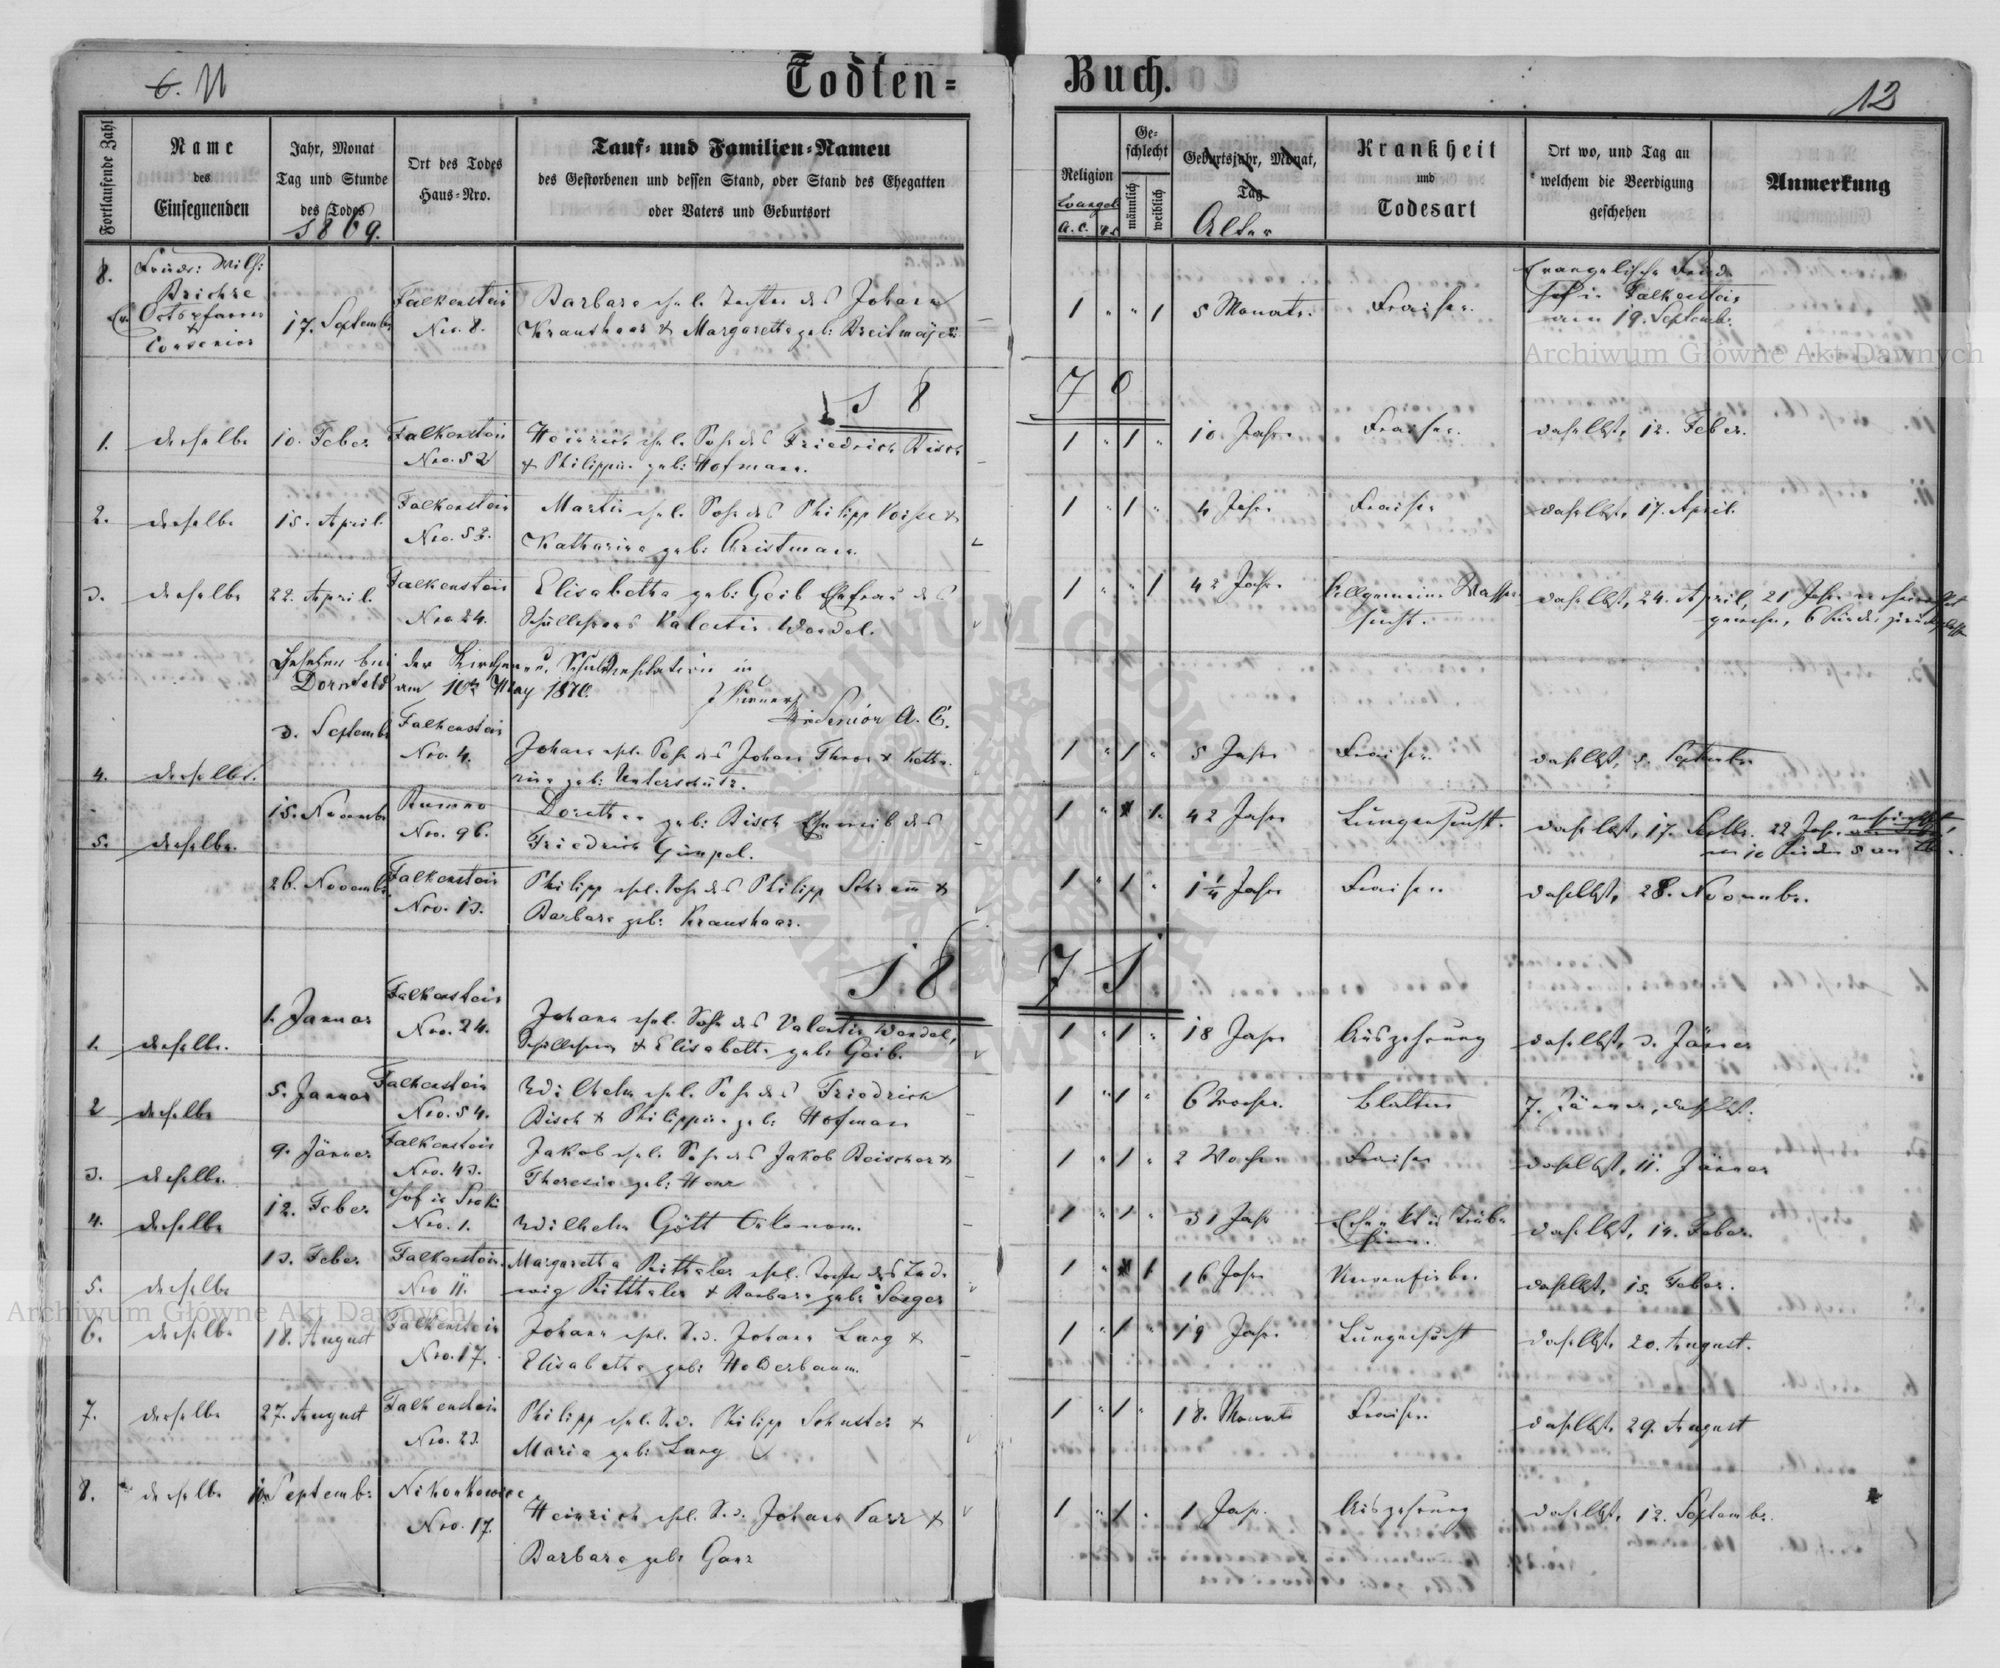 6. 11
Todten=
Buch.
12
Fortlaufende Zahl
Name
des
Einsegnenden
Jahr, Monat
Tag und Stunde
des Todes
1869.
Ort des Todes
Haus-Nro.
Tauf- und Familien-Namen
des Gestorbenen und dessen Stand, oder Stand des Ehegatten
oder Vaters und Geburtsort
Religion
Evangel.
A. C.
Ge-
schlecht
männlich
weiblich
Geburtsjahr, Monat,
Tag
Alter
Krankheit
und
Todesart
Ort wo, und Tag an
welchem die Beerdigung
geschehen
Anmerkung
8.
Ortspfarrer
Consenior
17. Septemb.
Falkenstein
Nro. 8.
Barbara ehel. Tochter des Johann
Kraushaar & Margaretha geb: Breitmayer
1 " " 1
5 Monate.
Fraisen.
Evangelische Fried-
hof in Falkenstein
am 19. Septemb.
18
70
1. derselbe
10. Feber
Falkenstein
Nro. 52
Heinrich ehel. Sohn des Friedrich Bisch
& Philippine geb: Hofmann.
1 " 1 "
10 Jahre
Fraisen.
daselbst, 12. Feber.
2. derselbe
15. April
Falkenstein
Nro. 53.
Martin ehel. Sohn des Philipp
Katharina geb: Christmann.
1 " 1 "
4 Jahre
Fraisen
daselbst, 17. April.
3. derselbe
22. April.
Falkenstein
Nro. 24.
Elisabetha geb: Geib Ehefrau des
Schullehrers Valentin Wendel.
1 " " 1
42 Jahre
Allgemeine Wasser-
sucht.
daselbst, 24. April,
21 Jahre verheirathet
gewesen, 6 Kinder
Gesehen bei der Kirchen u. Schulvisitation in
Dornfeld am 10ten May 1870
Senior A. C.
4. derselbe.
3. Septemb.
Falkenstein
Nro. 4.
Johann ehel. Sohn des Johann & Katha-
rina geb: Unterschütz.
1 " 1 "
5 Jahre
Fraisen.
daselbst, 5. Septembr
5. derselbe.
15. Novemb.
Rumno
Nro. 96.
Dorothea geb: Bisch Eheweib des
Friedrich Gimpel.
1 " 1.
42 Jahre
Lungensucht.
daselbst, 17.
22 Jahr
26. Novemb.
Falkenstein
Nro. 13.
Philipp ehel. Sohn des Philipp Schramm &
Barbara geb: Kraushaar.
1 " 1 "
1 1/4 Jahre
Fraisen
daselbst, 28. Novembr.
18
71
1. derselbe.
1. Januar
Falkenstein
Nro. 24.
Johann ehel. Sohn des Valentin Wendel,
Schullehrer & Elisabetha geb: Geib.
1 " 1 "
18 Jahre
Auszehrung
daselbst, 3. Jänner
2 derselbe
5. Januar
Falkenstein
Nro. 54.
Wilhelm ehel. Sohn des Friedrich
Bisch & Philippine geb: Hofmann
1 " 1 "
6 Wochen.
Blattern
7. Jänner, daselbst.
3. derselbe.
9. Jänner
Falkenstein
Nro. 43.
Jakob ehel. Sohn des Jakob Beischer &
Theresia geb:
1 " 1 "
2 Wochen
Fraisen
daselbst, 11. Jänner
4. derselbe
12. Feber
Nro. 1.
Wilhelm Gött Oekonom.
1 " 1 "
31 Jahr
daselbst, 14. Feber.
5. derselbe
13. Feber
Falkenstein.
Nro 11.
Margaretha Ritthaler ehel. Tochter des Lud-
wig Ritthaler & Barbara geb: Seeger
1 " 1
16 Jahre
Nervenfieber
daselbst, 15. Feber.
6. derselbe
18. August
Falkenstein
Nro. 17.
Johann ehel. S. d. Johann Lang &
Elisabetha geb: Holderbaum.
1 " 1 "
19 Jahre
Lungensucht
daselbst, 20. August.
7. derselbe
27. August
Falkenstein
Nro. 23.
Philipp ehel. S. d. Philipp Schuster &
Maria geb: Lang
1 " 1 "
18. Monate
Fraisen
daselbst, 29. August
8. derselbe
10. Septemb.
Nikonkowice
Nro. 17.
Heinrich ehel. S. d. Johann Parr &
Barbara geb: Ganz
1 " 1 .
1 Jahr.
Auszehrung
daselbst, 12. Septembr.
Archiwum Główne Akt Dawnych
Archiwum Główne Akt Dawnych
ARCHIWUM GŁÓWNE AKT DAWNYCH